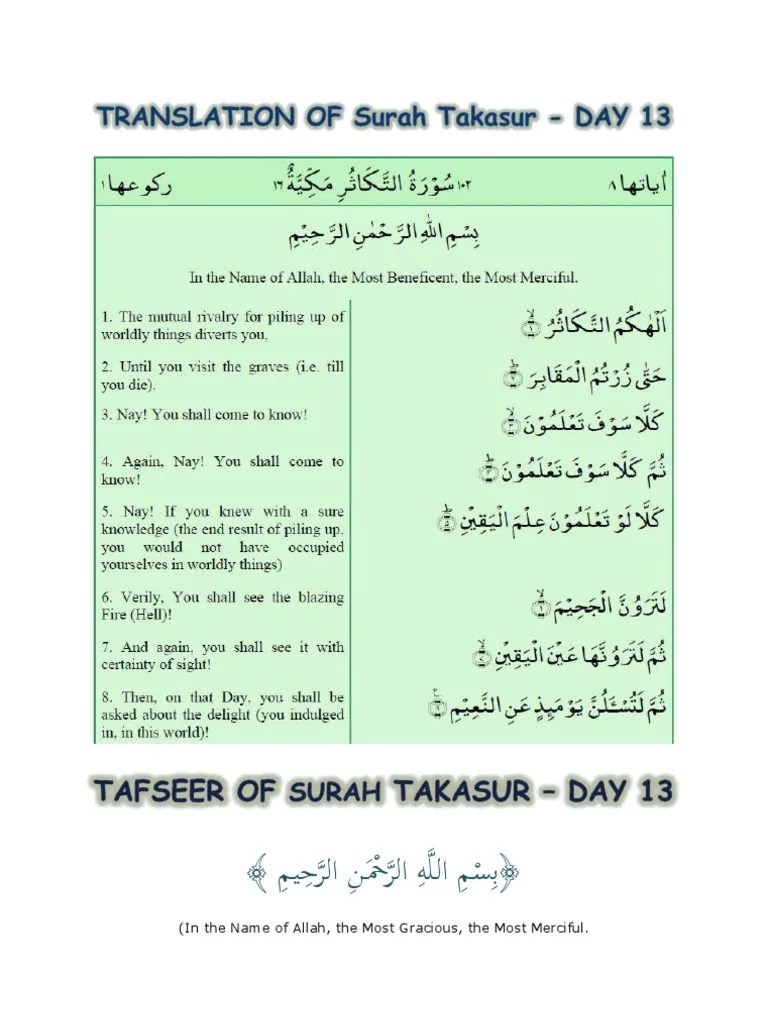 TRANSLATION OF Surah Takasur - DAY 13
اٰیاتها ٨ ١٠٢ سُوْرَةُ التَّكَاثُرِ مَكِّيَّةٌ ١٦ ركوعها ١
بِسْمِ اللهِ الرَّحْمٰنِ الرَّحِيْمِ
In the Name of Allah, the Most Beneficent, the Most Merciful.
1. The mutual rivalry for piling up of
worldly things diverts you,
اَلْهٰىكُمُ التَّكَاثُرُ ۙ﴿١﴾
2. Until you visit the graves (i.e. till
you die).
حَتّٰى زُرْتُمُ الْمَقَابِرَ ؕ﴿٢﴾
3. Nay! You shall come to know!
كَلَّا سَوْفَ تَعْلَمُوْنَ ۙ﴿٣﴾
4. Again, Nay! You shall come to
know!
ثُمَّ كَلَّا سَوْفَ تَعْلَمُوْنَ ؕ﴿٤﴾
5. Nay! If you knew with a sure
knowledge (the end result of piling up,
you would not have occupied
yourselves in worldly things)
كَلَّا لَوْ تَعْلَمُوْنَ عِلْمَ الْيَقِيْنِ ؕ﴿٥﴾
6. Verily, You shall see the blazing
Fire (Hell)!
لَتَرَوُنَّ الْجَحِيْمَ ۙ﴿٦﴾
7. And again, you shall see it with
certainty of sight!
ثُمَّ لَتَرَوُنَّهَا عَيْنَ الْيَقِيْنِ ۙ﴿٧﴾
8. Then, on that Day, you shall be
asked about the delight (you indulged
in, in this world)!
ثُمَّ لَتُسْـَٔلُنَّ يَوْمَىِٕذٍ عَنِ النَّعِيْمِ ﴿٨﴾
TAFSEER OF SURAH TAKASUR – DAY 13
﴿بِسْمِ اللَّهِ الرَّحْمَنِ الرَّحِيمِ ﴾
(In the Name of Allah, the Most Gracious, the Most Merciful.